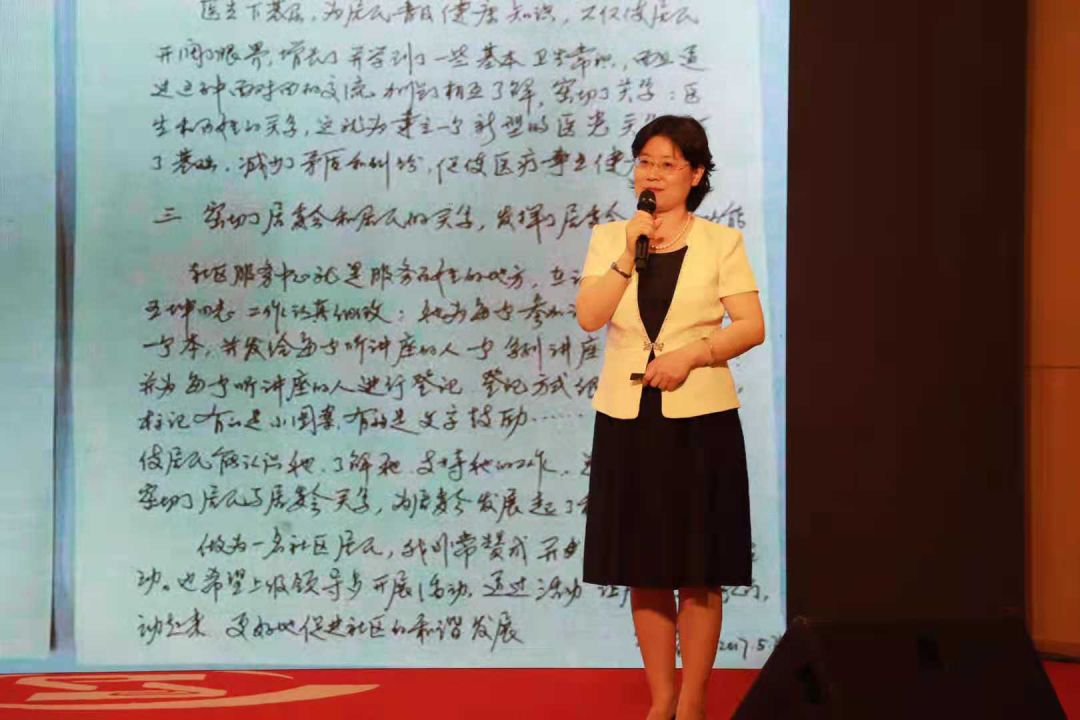 医生下基层,为居民普及健康知识,不仅使居民
开阔了眼界,增长了并学到了一些基本卫生常识,而且通
过这种面对面的交流 相互了解,密切了关系:医
生和百姓的关系,这就为建立一个新型的医患关
了基础。减少了矛盾和纠纷,促使医疗事业健
三 密切了居委会和居民的关系,发挥了居委会 功能
社区服务中心就是服务百姓的地方,在
同志 工作认真细致:她为每个参加
一个本,并发给每个听讲座的人一个 讲座
并为每个听讲座的人进行登记 登记方式很
标记 有的是小图案,有的是文字鼓励……
使居民能认识她、了解她、支持她的工作、
密切了居民与居委会关系,为居委会发展起了
做为一名社区居民,我非常赞成开
动。也希望上级领导多开展活动,通过活动 让
动起来 更好地促进社区的和谐发展
2017.5.